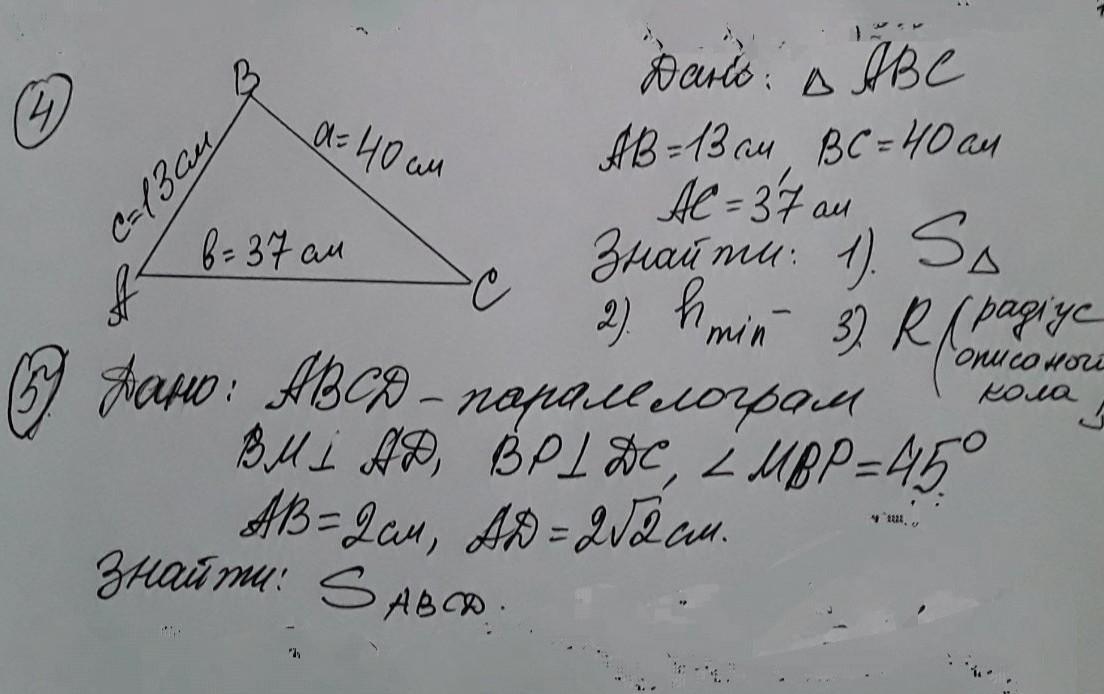 4
B
c=13см
a=40см
b=37 см
A
C
Дано: △ ABC
AB=13см, BC=40см
AC=37см
Знайти: 1). S△
2). h min 3). R (радіус
описаного
кола)
5. Дано: ABCD – паралелограм
BM⊥ AD, BP⊥DC, ∠MBP=45°
AB=2см, AD=2√2см.
Знайти: S ABCD.